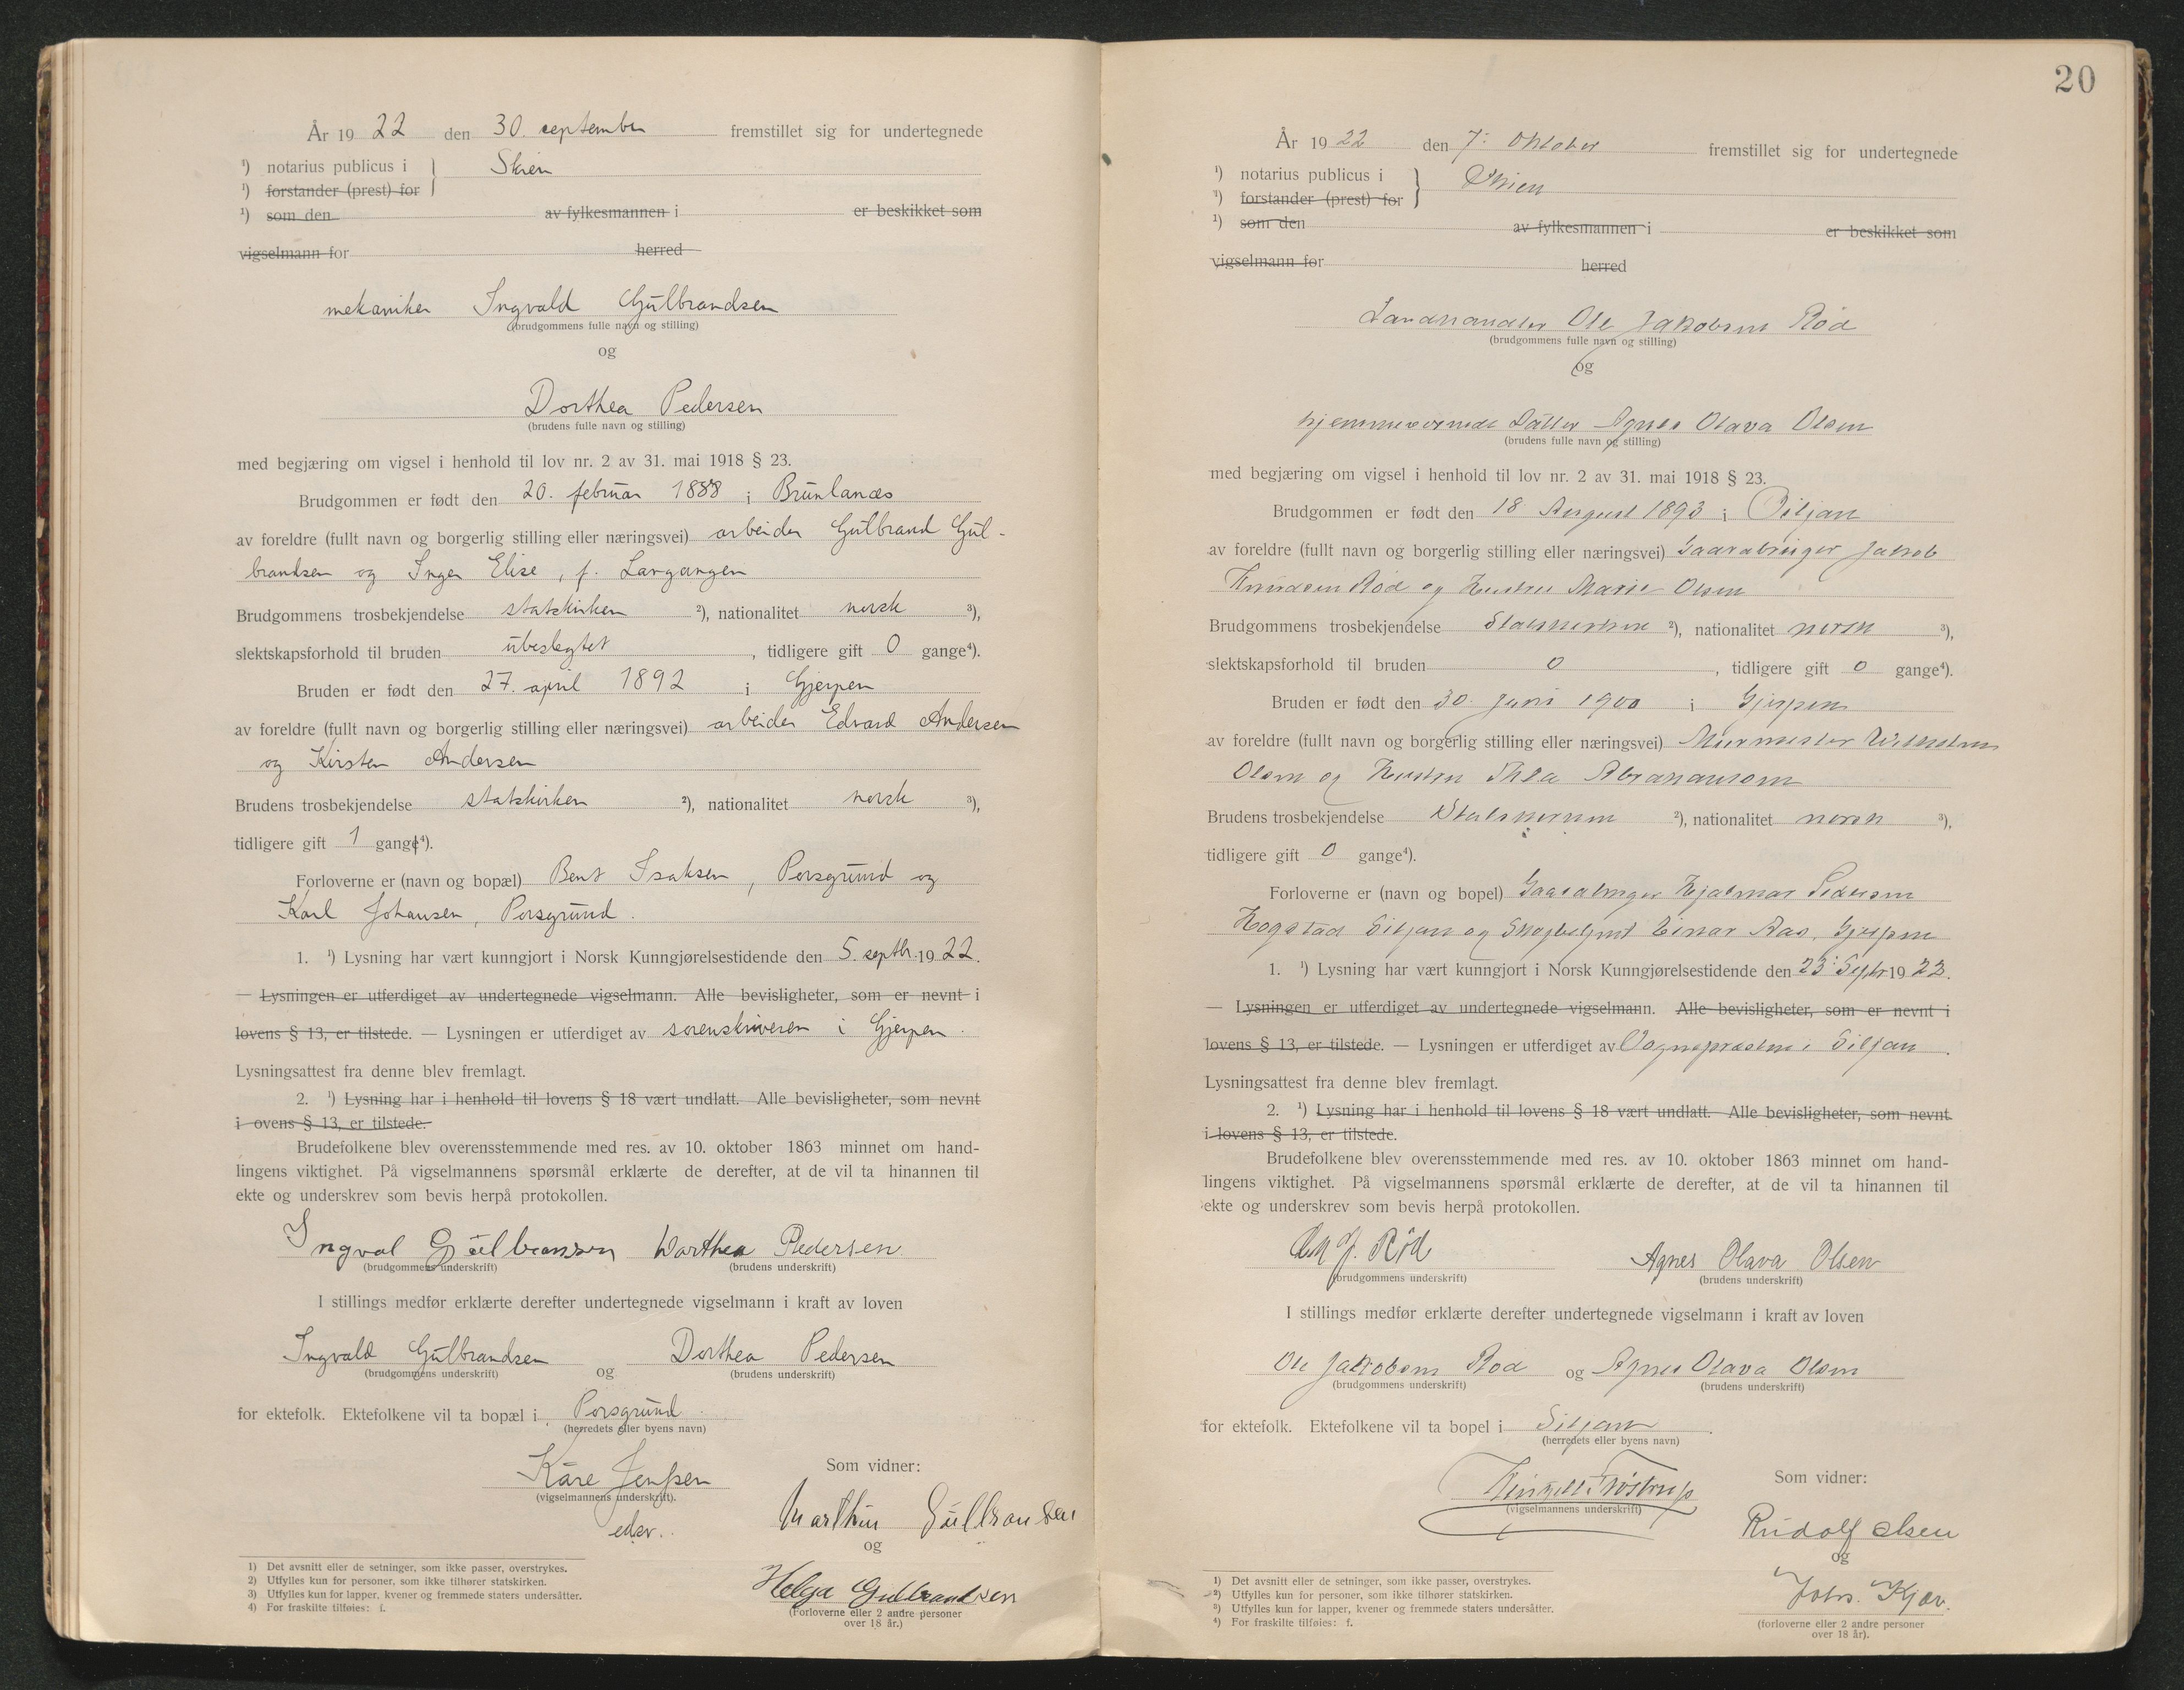 År 1922 den 30. september fremstillet sig for undertegnede
¹) notarius publicus i } Skien
¹) forstander (prest) for
¹) som den av fylkesmannen i er beskikket som
vigselmann for herred
mekaniker Ingvald Gulbrandsen
(brudgommens fulle navn og stilling)
og
Dorthea Pedersen
(brudens fulle navn og stilling)
med begjæring om vigsel i henhold til lov nr. 2 av 31. mai 1918 § 23.
Brudgommen er født den 20. februar 1888 i Brunlanæs
av foreldre (fullt navn og borgerlig stilling eller næringsvei) arbeider Gulbrand Gul-
brandsen og Inger Elise, f. Langangen
Brudgommens trosbekjendelse statskirken ²), nationalitet norsk ³),
slektskapsforhold til bruden ubeslegtet, tidligere gift 0 gange⁴).
Bruden er født den 27. april 1892 i Gjerpen
av foreldre (fullt navn og borgerlig stilling eller næringsvei) arbeider Edvard Andersen
og Kirsten Andersen
Brudens trosbekjendelse statskirken ²), nationalitet norsk ³),
tidligere gift 1 gange⁴).
Forloverne er (navn og bopæl) Bent Isaksen, Porsgrund og
Karl Johansen, Porsgrund.
1. ¹) Lysning har vært kunngjort i Norsk Kunngjørelsestidende den 5. septbr. 1922.
— Lysningen er utferdiget av undertegnede vigselmann. Alle bevisligheter, som er nevnt i
lovens § 13, er tilstede. — Lysningen er utferdiget av sorenskriveren i Gjerpen.
Lysningsattest fra denne blev fremlagt.
2. ¹) Lysning har i henhold til lovens § 18 vært undlatt. Alle bevisligheter, som nevnt
i ovens § 13, er tilstede.
Brudefolkene blev overensstemmende med res. av 10. oktober 1863 minnet om hand-
lingens viktighet. På vigselmannens spørsmål erklærte de derefter, at de vil ta hinannen til
ekte og underskrev som bevis herpå protokollen.
Ingval Gulbransen Dorthea Pedersen
(brudgommens underskrift) (brudens underskrift)
I stillings medfør erklærte derefter undertegnede vigselmann i kraft av loven
Ingvald Gulbrandsen og Dorthea Pedersen
(brudgommens underskrift) (brudens underskrift)
for ektefolk. Ektefolkene vil ta bopæl i Porsgrund.
(herredets eller byens navn)
Som vidner:
Kåre Jenssen
(vigselmannens underskrift).
edsv.
Marthin Gulbransen
og
Helga Gulbrandsen
(Forloverne eller 2 andre personer
over 18 år.)
1) Det avsnitt eller de setninger, som ikke passer, overstrykes.
2) Utfylles kun for personer, som ikke tilhører statskirken.
3) Utfylles kun for lapper, kvener og fremmede staters undersåtter.
4) For fraskilte tilføies: f.
20
År 1922 den 7. Oktober fremstillet sig for undertegnede
¹) notarius publicus i } Skien
¹) forstander (prest) for
¹) som den av fylkesmannen i er beskikket som
vigselmann for herred
Landhandler Ole Jakobsen Rød
(brudgommens fulle navn og stilling)
og
hjemmeværende Datter Agnes Olava Olsen
(brudens fulle navn og stilling)
med begjæring om vigsel i henhold til lov nr. 2 av 31. mai 1918 § 23.
Brudgommen er født den 18 August 1893 i Siljan
av foreldre (fullt navn og borgerlig stilling eller næringsvei) Gaardbruger Jakob
Knudsen Rød og Hustru Marie Olsen
Brudgommens trosbekjendelse Statskirken ²), nationalitet norsk ³),
slektskapsforhold til bruden 0, tidligere gift 0 gange⁴).
Bruden er født den 30. Juni 1900 i Gjerpen
av foreldre (fullt navn og borgerlig stilling eller næringsvei) Murmester Wilhelm
Olsen og Hustru Thea Abrahamsen
Brudens trosbekjendelse Statskirken ²), nationalitet norsk ³),
tidligere gift 0 gange⁴).
Forloverne er (navn og bopel) Gaardbruger Hjalmar Pedersen
Hogstad Siljan og Skogbetjent Einar Aas, Gjerpen
1. ¹) Lysning har vært kunngjort i Norsk Kunngjørelsestidende den 23. Septr. 1922.
— Lysningen er utferdiget av undertegnede vigselmann. Alle bevisligheter, som er nevnt i
lovens § 13, er tilstede. — Lysningen er utferdiget av Sognepræsten i Siljan.
Lysningsattest fra denne blev fremlagt.
2. ¹) Lysning har i henhold til lovens § 18 vært undlatt. Alle bevisligheter, som nevnt
i lovens § 13, er tilstede.
Brudefolkene blev overensstemmende med res. av 10. oktober 1863 minnet om hand-
lingens viktighet. På vigselmannens spørsmål erklærte de derefter, at de vil ta hinannen til
ekte og underskrev som bevis herpå protokollen.
J. Rød Agnes Olava Olsen
(brudgommens underskrift) (brudens underskrift)
I stillings medfør erklærte derefter undertegnede vigselmann i kraft av loven
Ole Jakobsen Rød og Agnes Olava Olsen
(brudgommens underskrift) (brudens underskrift)
for ektefolk. Ektefolkene vil ta bopel i Siljan.
(herredets eller byens navn)
Som vidner:
Frøstrup
(vigselmannens underskrift)
Rudolf Olsen
og
Johs. Kjær.
(forloverne eller 2 andre personer
over 18 år).
1) Det avsnitt eller de setninger, som ikke passer, overstrykes.
2) Utfylles kun for personer, som ikke tilhører statskirken.
3) Utfylles kun for lapper, kvener og fremmede staters undersåtter.
4) For fraskilte tilføies: f.